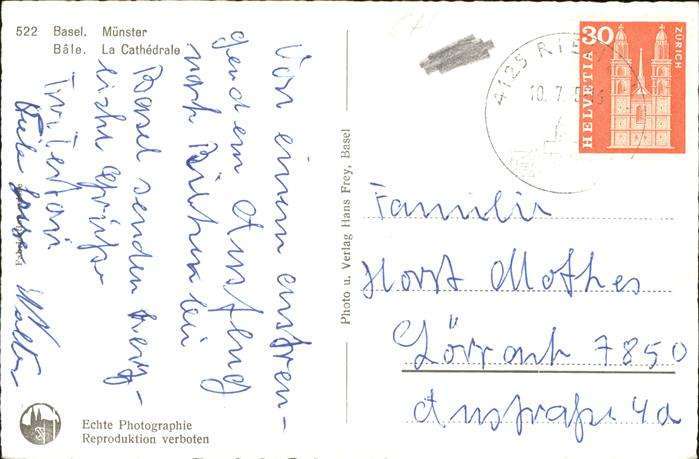 522 Basel. Münster
Bâle. La Cathédrale
Von einem anstren-
gendem Ausflug
nach
Basel senden herz-
liche Grüße
Walter
Echte Photographie
Reproduktion verboten
Photo u. Verlag Hans Frey, Basel
4125
10.7.
HELVETIA 30
ZÜRICH
Familie
Horst Mothes
Lörrach 7850
straße 4a